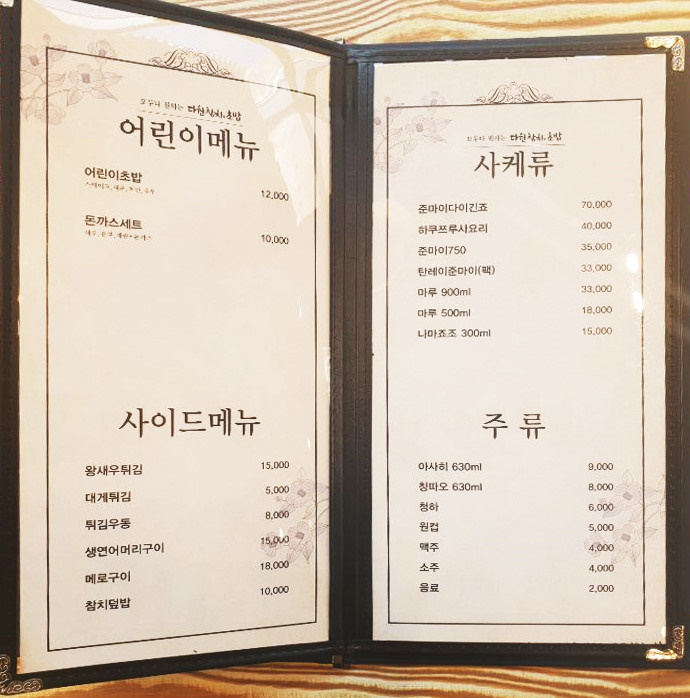 모두다 원하는 다원참치&초밥
어린이메뉴
어린이초밥
12,000
돈까스세트
10,000
사이드메뉴
왕새우튀김 15,000
대게튀김 5,000
튀김우동 8,000
생연어머리구이 15,000
메로구이 18,000
참치덮밥 10,000
모두다 원하는 다원참치&초밥
사케류
준마이다이긴죠 70,000
하쿠쯔루사요리 40,000
준마이750 35,000
탄레이준마이(팩) 33,000
마루 900ml 33,000
마루 500ml 18,000
나마죠조 300ml 15,000
주 류
아사히 630ml 9,000
칭따오 630ml 8,000
청하 6,000
원컵 5,000
맥주 4,000
소주 4,000
음료 2,000